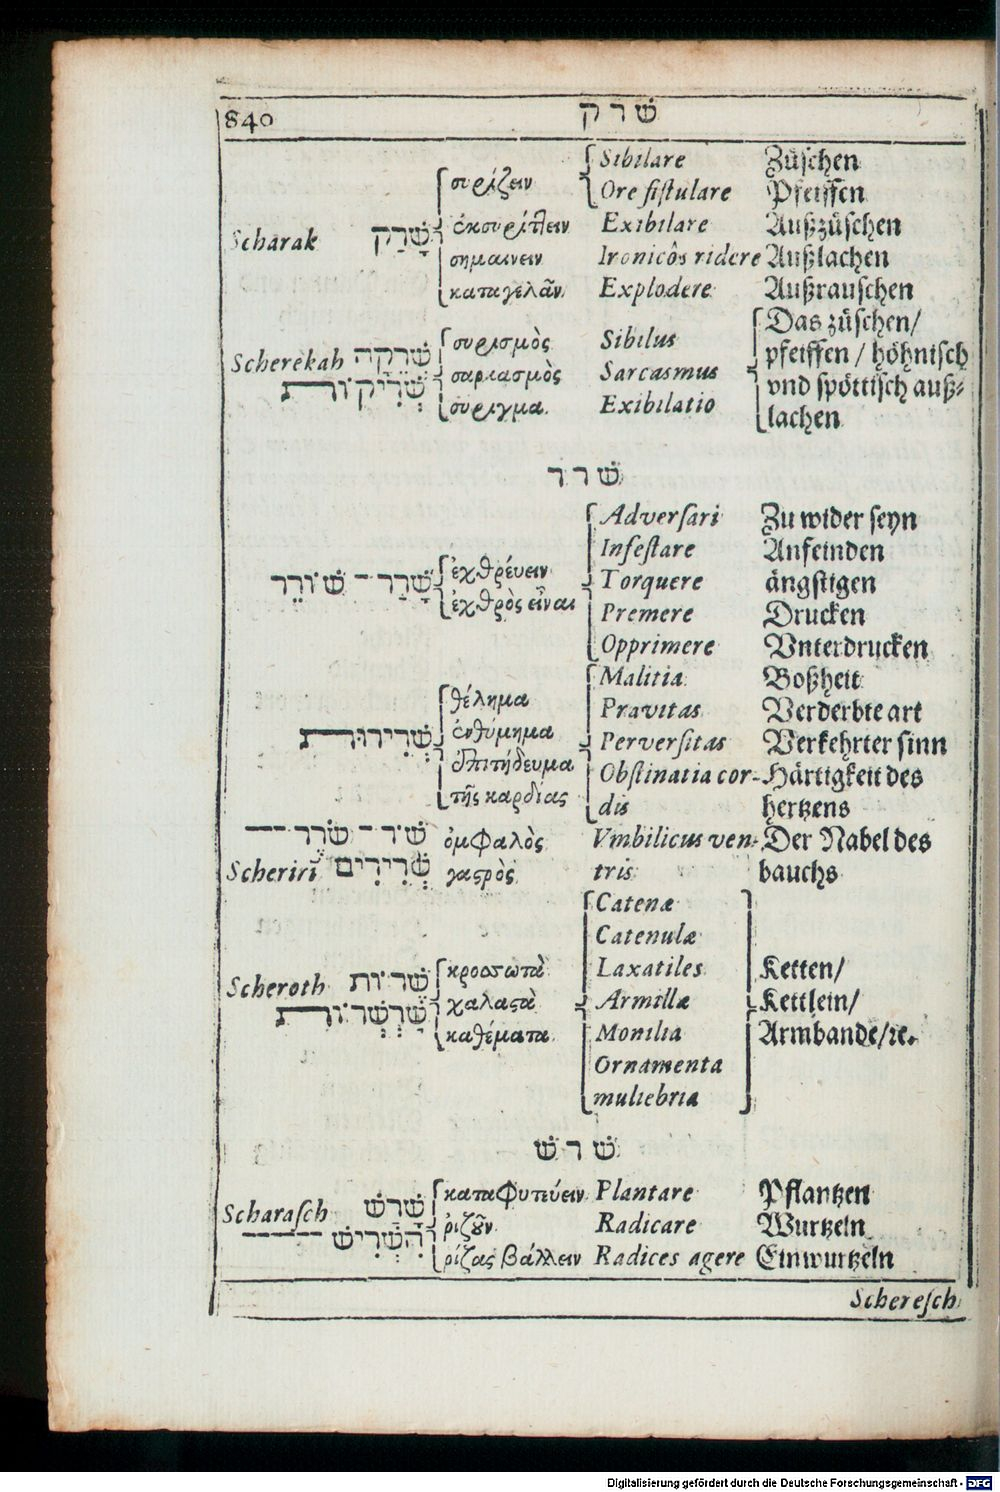 840 שׁרק
συρίζειν Sibilare Züschen
Ore fistulare Pfeiffen
Scharak שָׁרַק ἐκσυρίττειν Exibilare Außzüschen
σημαινειν Ironicôs ridere Außlachen
καταγελᾶν Explodere Außrauschen
Scherekah שְׁרֵקָה συρισμὸς Sibilus Das züschen/
pfeiffen / höhnisch
שְׁרִיקוֹת σαρκασμὸς Sarcasmus vnd spöttisch auß-
συριγμα Exibilatio lachen
שׁרר
Adversari Zu wider seyn
Infestare Anfeinden
שָׁרַר - שׁוֹרֵר ἐχθρέυειν Torquere ängstigen
ἐχθρὸς εἶναι Premere Drucken
Opprimere Vnterdrucken
θέλημα Malitia Boßheit
ἐνθύμημα Pravitas Verderbte art
שְׁרִירוּת Perversitas Verkehrter sinn
ἐπιτήδευμα Obstinatia cor- Härtigkeit des
τῆς καρδίας dis hertzens
שׁׂר - שׁׂרֶר ὀμφαλὸς Vmbilicus ven- Der Nabel des
Scheriri שְׁרִירִים γαστρὸς tris bauchs
Catenæ
Catenulæ
Scheroth שֵׁרוֹת κροσσωτὰ Laxatiles Ketten/
שַׁרְשְׁרוֹת χαλαστὰ Armillæ Kettlein/
καθέματα Monilia Armbande/ꝛc.
Ornamenta
muliebria
שׁרשׁ
Scharasch שָׁרַשׁ καταφυτεύειν Plantare Pflantzen
הִשְׁרִישׁ ῥιζοῦν Radicare Wurtzeln
ῥίζας βάλλειν Radices agere Einwurtzeln
Scheresch
Digitalisierung gefördert durch die Deutsche Forschungsgemeinschaft - DFG